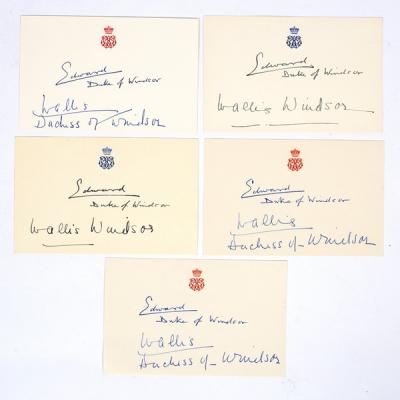 Edward
Duke of Windsor
Wallis
Duchess of Windsor
Edward
Duke of Windsor
Wallis Windsor
Edward
Duke of Windsor
Wallis Windsor
Edward
Duke of Windsor
Wallis
Duchess of Windsor
Edward
Duke of Windsor
Wallis
Duchess of Windsor